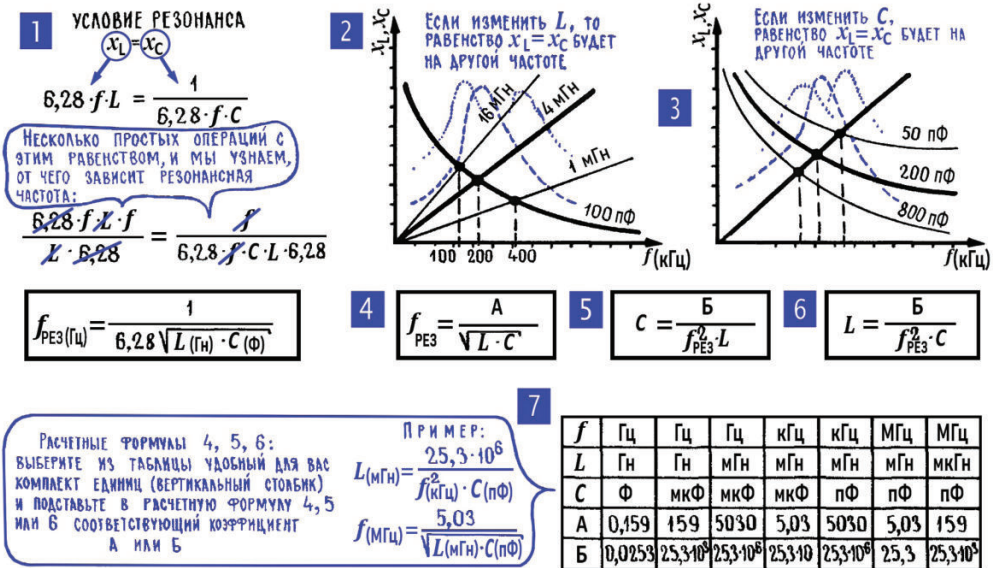 1
УСЛОВИЕ РЕЗОНАНСА
x_L = x_C
6,28·f·L = 1 / 6,28·f·C
НЕСКОЛЬКО ПРОСТЫХ ОПЕРАЦИЙ С
ЭТИМ РАВЕНСТВОМ, И МЫ УЗНАЕМ,
ОТ ЧЕГО ЗАВИСИТ РЕЗОНАНСНАЯ
ЧАСТОТА:
6,28·f·L·f / L·6,28 = f / 6,28·f·C·L·6,28
f РЕЗ(Гц) = 1 / 6,28√L (Гн)·C (Ф)
2
x_L, x_C
ЕСЛИ ИЗМЕНИТЬ L, ТО
РАВЕНСТВО x_L = x_C БУДЕТ
НА ДРУГОЙ ЧАСТОТЕ
16 мГн
4 мГн
1 мГн
100 пФ
100 200 400 f(кГц)
3
x_L, x_C
ЕСЛИ ИЗМЕНИТЬ C,
РАВЕНСТВО x_L = x_C БУДЕТ НА
ДРУГОЙ ЧАСТОТЕ
50 пФ
200 пФ
800 пФ
f(кГц)
4
f РЕЗ = А / √L·C
5
C = Б / f²РЕЗ·L
6
L = Б / f²РЕЗ·C
РАСЧЕТНЫЕ ФОРМУЛЫ 4, 5, 6:
ВЫБЕРИТЕ ИЗ ТАБЛИЦЫ УДОБНЫЙ ДЛЯ ВАС
КОМПЛЕКТ ЕДИНИЦ (ВЕРТИКАЛЬНЫЙ СТОЛБИК)
И ПОДСТАВЬТЕ В РАСЧЕТНУЮ ФОРМУЛУ 4, 5
ИЛИ 6 СООТВЕТСТВУЮЩИЙ КОЭФФИЦИЕНТ
А ИЛИ Б
ПРИМЕР:
L(мГн) = 25,3·10⁶ / f²(кГц)·C(пФ)
f(МГц) = 5,03 / √L(мГн)·C(пФ)
7
f Гц Гц Гц кГц кГц МГц МГц
L Гн Гн мГн мГн мГн мГн мкГн
C Ф мкФ мкФ мкФ пФ пФ пФ
А 0,159 159 5030 5,03 5030 5,03 159
Б 0,0253 25,3·10³ 25,3·10⁶ 25,3·10 25,3·10⁶ 25,3 25,3·10³